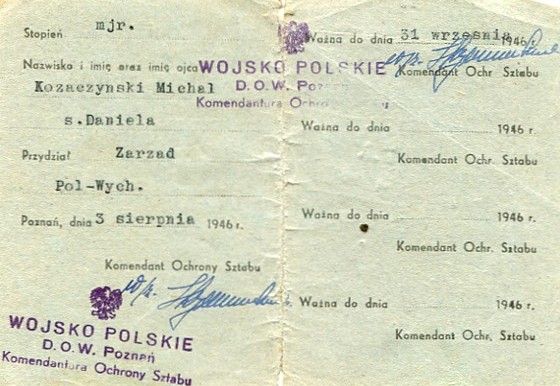 Stopień mjr.
Nazwisko i imię oraz imię ojca
Kozaczynski Michał
s.Daniela
Przydział Zarzad
Pol-Wych.
Poznań, dnia 3 sierpnia 1946 r.
Komendant Ochrony Sztabu
w/z.
WOJSKO POLSKIE
D.O.W. Poznań
Komendantura Ochrony Sztabu
WOJSKO POLSKIE
D.O.W. Poznań
Komendantura Ochrony
Ważna do dnia 31 września 1946
w/z.
Komendant Ochr. Sztabu
Ważna do dnia 1946 r.
Komendant Ochr. Sztabu
Ważna do dnia 1946 r.
Komendant Ochr. Sztabu
Ważna do dnia 1946 r.
Komendant Ochr. Sztabu